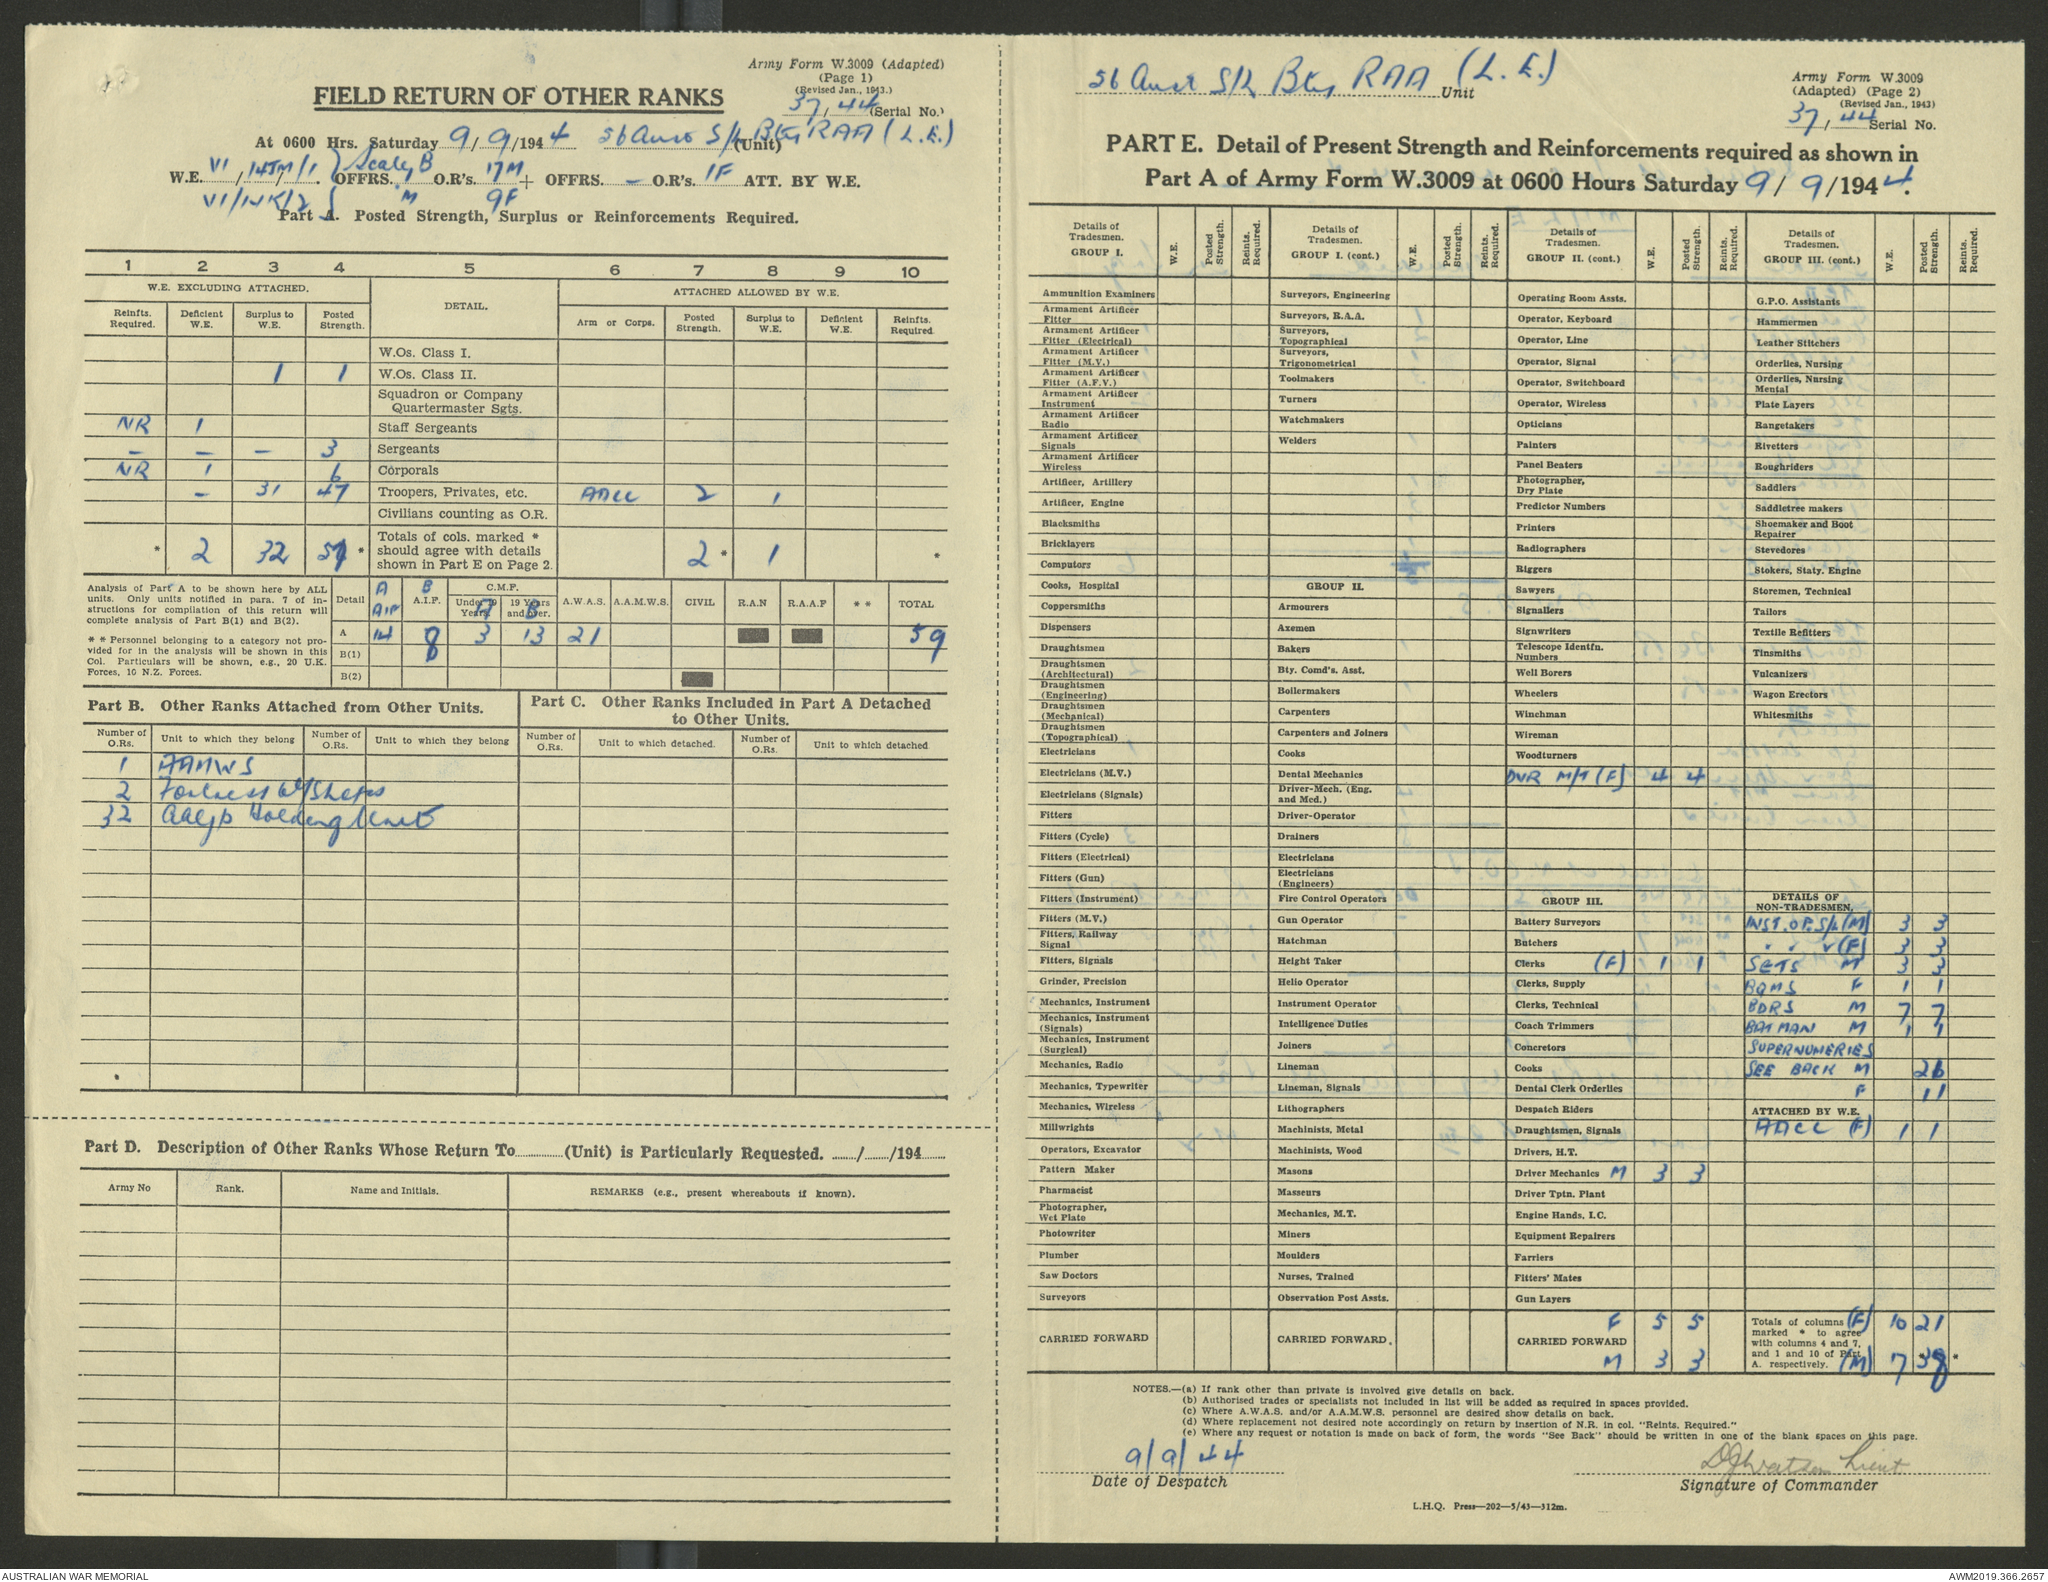 Army Form W.3009 (Adapted)
(Page 1)
(Revised Jan., 1943.)
37/44 (Serial No.)
FIELD RETURN OF OTHER RANKS
At 0600 Hrs. Saturday 9/9/1944 56 Aust S/L Bty RAA (L.E.) (Unit)
W.E. VI/14JM/1 } Scaley B OFFRS. 1 O.R's. 17M + OFFRS. — O.R's. 1F ATT. BY W.E.
M 9F
Part A. Posted Strength, Surplus or Reinforcements Required.
1 2 3 4 5 6 7 8 9 10
W.E. EXCLUDING ATTACHED. DETAIL. ATTACHED ALLOWED BY W.E.
Reinfts. Required. Deficient W.E. Surplus to W.E. Posted Strength. Arm or Corps. Posted Strength. Surplus to W.E. Deficient W.E. Reinfts. Required
W.Os. Class I.
1 1 W.Os. Class II.
Squadron or Company
Quartermaster Sgts.
NR 1 Staff Sergeants
— — — 3 Sergeants
NR 1 6 Corporals
— 31 47 Troopers, Privates, etc. AACC 2 1
Civilians counting as O.R.
* 2 32 57 * Totals of cols. marked * should agree with details shown in Part E on Page 2. 2 * 1 *
Analysis of Part A to be shown here by ALL
units. Only units notified in para. 7 of in-
structions for compilation of this return will
complete analysis of Part B(1) and B(2).
* * Personnel belonging to a category not pro-
vided for in the analysis will be shown in this
Col. Particulars will be shown, e.g., 20 U.K.
Forces, 10 N.Z. Forces.
Detail A AIF B A.I.F. C.M.F. Under 19 Years A 19 Years and over. B A.W.A.S. A.A.M.W.S. CIVIL R.A.N R.A.A.F * * TOTAL
A 14 8 3 13 21 59
B(1)
B(2)
Part B. Other Ranks Attached from Other Units.
Number of O.Rs. Unit to which they belong Number of O.Rs. Unit to which they belong
1 AAMWS
2 Fortress W/Shops
32 Holding Unit
Part C. Other Ranks Included in Part A Detached
to Other Units.
Number of O.Rs. Unit to which detached. Number of O.Rs. Unit to which detached
Part D. Description of Other Ranks Whose Return To............(Unit) is Particularly Requested. ......./......./194.......
Army No Rank. Name and Initials. REMARKS (e.g., present whereabouts if known).
56 Aust S/L Bty RAA (L.E.) Unit
Army Form W.3009
(Adapted) (Page 2)
(Revised Jan., 1943)
37/44 Serial No.
PART E. Detail of Present Strength and Reinforcements required as shown in
Part A of Army Form W.3009 at 0600 Hours Saturday 9/9/1944.
Details of Tradesmen. GROUP I. W.E. Posted Strength. Reints. Required.
Ammunition Examiners
Armament Artificer Fitter
Armament Artificer Fitter (Electrical)
Armament Artificer Fitter (M.V.)
Armament Artificer Fitter (A.F.V.)
Armament Artificer Instrument
Armament Artificer Radio
Armament Artificer Signals
Armament Artificer Wireless
Artificer, Artillery
Artificer, Engine
Blacksmiths
Bricklayers
Computors
Cooks, Hospital
Coppersmiths
Dispensers
Draughtsmen
Draughtsmen (Architectural)
Draughtsmen (Engineering)
Draughtsmen (Mechanical)
Draughtsmen (Topographical)
Electricians
Electricians (M.V.)
Electricians (Signals)
Fitters
Fitters (Cycle)
Fitters (Electrical)
Fitters (Gun)
Fitters (Instrument)
Fitters (M.V.)
Fitters, Railway Signal
Fitters, Signals
Grinder, Precision
Mechanics, Instrument
Mechanics, Instrument (Signals)
Mechanics, Instrument (Surgical)
Mechanics, Radio
Mechanics, Typewriter
Mechanics, Wireless
Millwrights
Operators, Excavator
Pattern Maker
Pharmacist
Photographer, Wet Plate
Photowriter
Plumber
Saw Doctors
Surveyors
CARRIED FORWARD
Details of Tradesmen. GROUP I. (cont.) W.E. Posted Strength. Reints. Required.
Surveyors, Engineering
Surveyors, R.A.A.
Surveyors, Topographical
Surveyors, Trigonometrical
Toolmakers
Turners
Watchmakers
Welders
GROUP II.
Armourers
Axemen
Bakers
Bty. Comd's. Asst.
Boilermakers
Carpenters
Carpenters and Joiners
Cooks
Dental Mechanics
Driver-Mech. (Eng. and Med.)
Driver-Operator
Drainers
Electricians
Electricians (Engineers)
Fire Control Operators
Gun Operator
Hatchman
Height Taker
Helio Operator
Instrument Operator
Intelligence Duties
Joiners
Lineman
Lineman, Signals
Lithographers
Machinists, Metal
Machinists, Wood
Masons
Masseurs
Mechanics, M.T.
Miners
Moulders
Nurses, Trained
Observation Post Assts.
CARRIED FORWARD.
Details of Tradesmen. GROUP II. (cont.) W.E. Posted Strength. Reints. Required.
Operating Room Assts.
Operator, Keyboard
Operator, Line
Operator, Signal
Operator, Switchboard
Operator, Wireless
Opticians
Painters
Panel Beaters
Photographer, Dry Plate
Predictor Numbers
Printers
Radiographers
Riggers
Sawyers
Signallers
Signwriters
Telescope Identfn. Numbers
Well Borers
Wheelers
Winchman
Wireman
Woodturners
DVR M/T (F) 4 4
GROUP III.
Battery Surveyors
Butchers
Clerks (F) 1 1
Clerks, Supply
Clerks, Technical
Coach Trimmers
Concretors
Cooks
Dental Clerk Orderlies
Despatch Riders
Draughtsmen, Signals
Drivers, H.T.
Driver Mechanics M 3 3
Driver Tptn. Plant
Engine Hands, I.C.
Equipment Repairers
Farriers
Fitters' Mates
Gun Layers
F 5 5
CARRIED FORWARD
M 3 3
Details of Tradesmen. GROUP III. (cont.) W.E. Posted Strength. Reints. Required.
G.P.O. Assistants
Hammermen
Leather Stitchers
Orderlies, Nursing
Orderlies, Nursing Mental
Plate Layers
Rangetakers
Rivetters
Roughriders
Saddlers
Saddletree makers
Shoemaker and Boot Repairer
Stevedores
Stokers, Staty. Engine
Storemen, Technical
Tailors
Textile Refitters
Tinsmiths
Vulcanizers
Wagon Erectors
Whitesmiths
DETAILS OF NON-TRADESMEN.
INST. OF. S/L (M) 3 3
" " " (F) 3 3
SGTS M 3 3
BQMS F 1 1
BDRS M 7 7
BATMAN M 1 1
SUPERNUMERIES
SEE BACK M 26
F 11
ATTACHED BY W.E.
AACC (F) 1 1
Totals of columns (F) 10 21
marked * to agree
with columns 4 and 7,
and 1 and 10 of Part
A. respectively. (M) 7 *38 *
NOTES.—(a) If rank other than private is involved give details on back.
(b) Authorised trades or specialists not included in list will be added as required in spaces provided.
(c) Where A.W.A.S. and/or A.A.M.W.S. personnel are desired show details on back.
(d) Where replacement not desired note accordingly on return by insertion of N.R. in col. "Reints. Required."
(e) Where any request or notation is made on back of form, the words "See Back" should be written in one of the blank spaces on this page.
9/9/44
Date of Despatch
DJWatson Lieut
Signature of Commander
L.H.Q. Press—202—5/43—312m.
AUSTRALIAN WAR MEMORIAL
AWM2019.366.2657